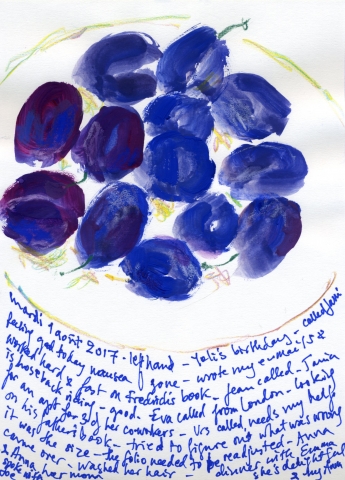 mardi 1 août 2017 - left hand - Yuli's birthday - called Jani
feeling god today nausea gone - wrote my emails &
worked hard & fast on Frederic's book - Jean called - Tania
is horseback riding - good - Eva called from London - looking
for an apt for 2 of her coworkers - Urs called needs my help
on his father's book - tried to figure out what was wrong
it was the size - the folio needed to be readjusted - Anna
came over - washed her hair - dinner with Emma
& Anna her mom she's delightful
spoke with
Joe